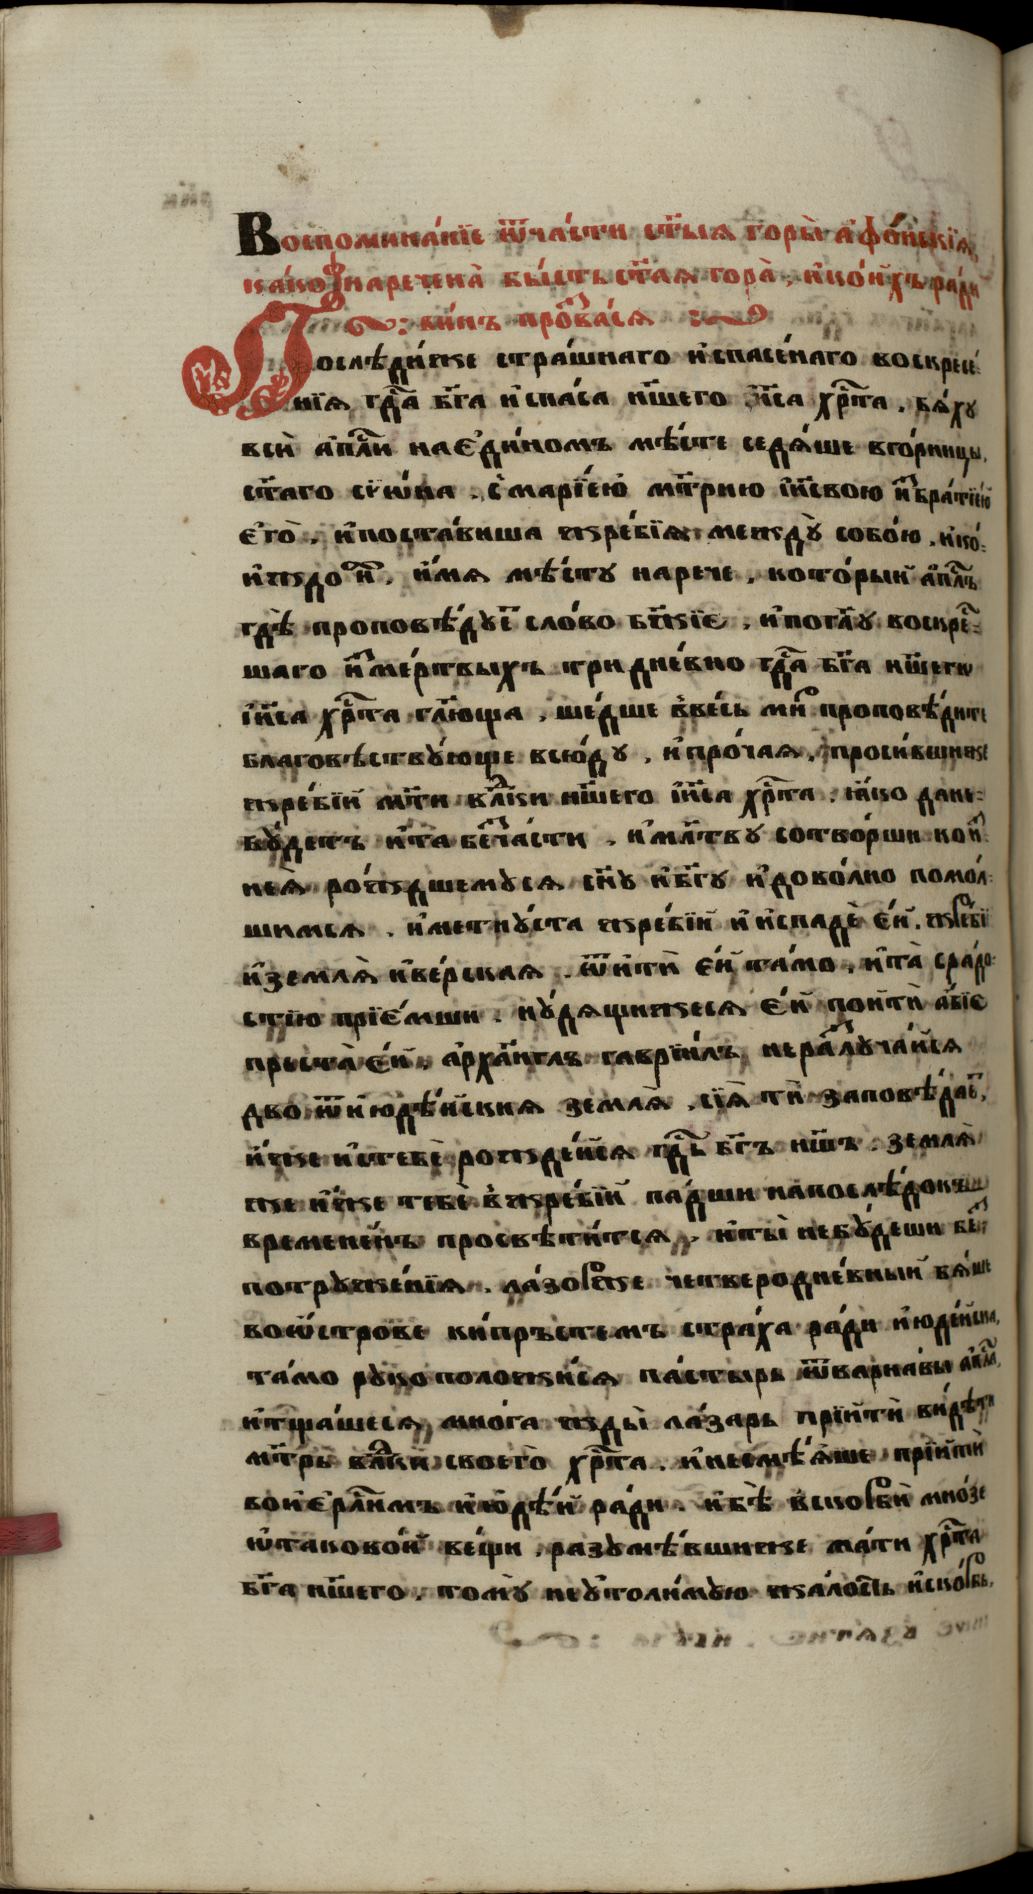 Воспомина́нїе ѿча́сти ст҃ы́ѧ горы̀ а҆ѳо́ньскїѧ,
ка́ко нарече́на бы́сть ст҃аѧ гора̀, и҆ко́ихъ ра́ди
ви́нъ прозва́сѧ
Послѣди́же стра́шнаго и҆спасе́наго воскресе́-
нїѧ, гдⷭ҇а бг҃а и҆ спа́са нш҃его і҆и҃са хрⷭ҇та. бѧ́хꙋ
вси́ а҆пⷭ҇ли на є҆ди́номъ мѣ́сте седѧ́ше вго́рницы,
ст҃аго сїѡ́на. с̾марі́ею мт҃рию і҆и҃свою и҆ бра́тїею
є҆го̀. и҆поста́виша жре́бїѧ междꙋ̀ собо́ю. и҆ко́-
и҆ждо и҆ⷯ. и҆́мѧ мѣ́стꙋ нарече. кото́рый а҆пⷭ҇лъ
гдѣ̀ проповѣ́дꙋеⷮ сло́во бж҃їе. и҆погл҃ꙋ воскре́с-
шаго иⷥме́ртвыхъ тридне́вно гдⷭ҇а бг҃а нш҃его
і҆и҃са хрⷭ҇та гл҃юща. ше́дше в̾ве́сь миⷬ проповѣ́дите
благовѣствꙋ́юще всю́дꙋ. и҆про́чаѧ. проси́вшиже
жре́бїй мт҃и влⷣки нш҃его і҆и҃са хрⷭ҇та. ꙗ҆́ко дане-
бꙋ́детъ и҆та беⷥча́сти. и҆мл҃твꙋ сотво́рши коиⷥ
неѧ̀ ро́ждшемꙋсѧ сн҃ꙋ и҆бг҃ꙋ и҆дово́лно помо́л-
шимсѧ. и҆метнꙋ́ста жре́бїй и҆ испадѐ є҆́й. жре́бїй
и҆землѧ̀ и҆ве́рская. ѿи҆тѝ є҆́й та́мо. и҆та̀ сра́до-
стїю прїе́мши. нꙋ́дѧщижесѧ є҆́й поитѝ а҆́бїе
преста̀ є҆́й, а҆рха́гг҃лъ гаврїи́лъ неразлꙋча́йсѧ
дво ѿи҆юдѣ́йскиѧ землѧ̀. сїѧ̀ ти заповѣ́даеⷮ,
и҆́же иⷥтебѐ рожде́йсѧ гдⷭ҇ь бг҃ъ нш҃ъ. землѧ̀
же и҆́же тебѐ в̾жре́бїй па́дши напослѣ́докъ
времене́нъ просвѣти́тсѧ. и҆ты̀ небꙋ́деши беⷥ
потрꙋже́нїѧ. ла́зорьже четверодне́вный бѧ́ше
воѡ҆́строве ки́пръстемъ стра́ха ра́ди и҆юде́йска,
та́мо рꙋкоположи́сѧ па́стырь ѿварна́вы а҆пⷭ҇ла,
и҆тща́шесѧ мно́га жды̀ ла́зарь прїитѝ ви́дѣти
мт҃рь влⷣки своего̀ хрⷭ҇та. и҆несмѣ́ѧше прїитѝ
вои҆єрⷭ҇лимъ и҆юдѣ́й ра́ди. и҆бѣ̀ вско́рби мно́зе
ѡ҆тако́вой ве́щи. разꙋмѣ́вшиже ма́ти хрⷭ҇та
бг҃а нш҃его. томꙋ̀ неꙋ҆толи́мꙋю жа́лость и҆ско́рбь.